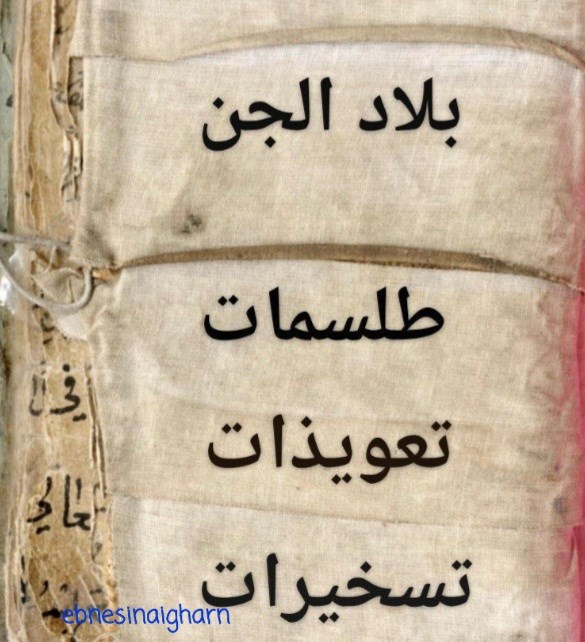 بلاد الجن
طلسمات
تعويذات
تسخيرات
ebnesinaigharn